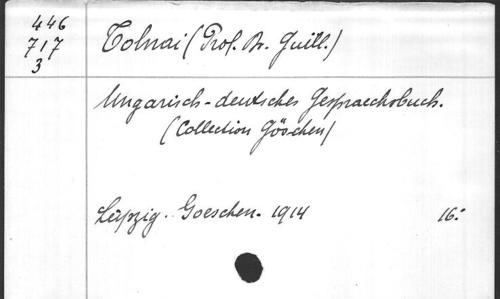 446
717
3
Tolnai (Prof. Dr. Guill.)
Ungarisch-deutsches Gespraechsbuch.
(Collection Göschen)
Leipzig. Goeschen. 1914 16: